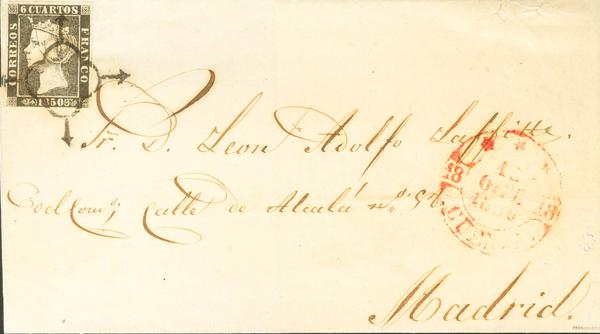 6 CUARTOS
CORREOS
FRANCO
1850
Sr. D. Leon Adolfo Laffitte.
Calle de Alcalá nº
Madrid.
18
18